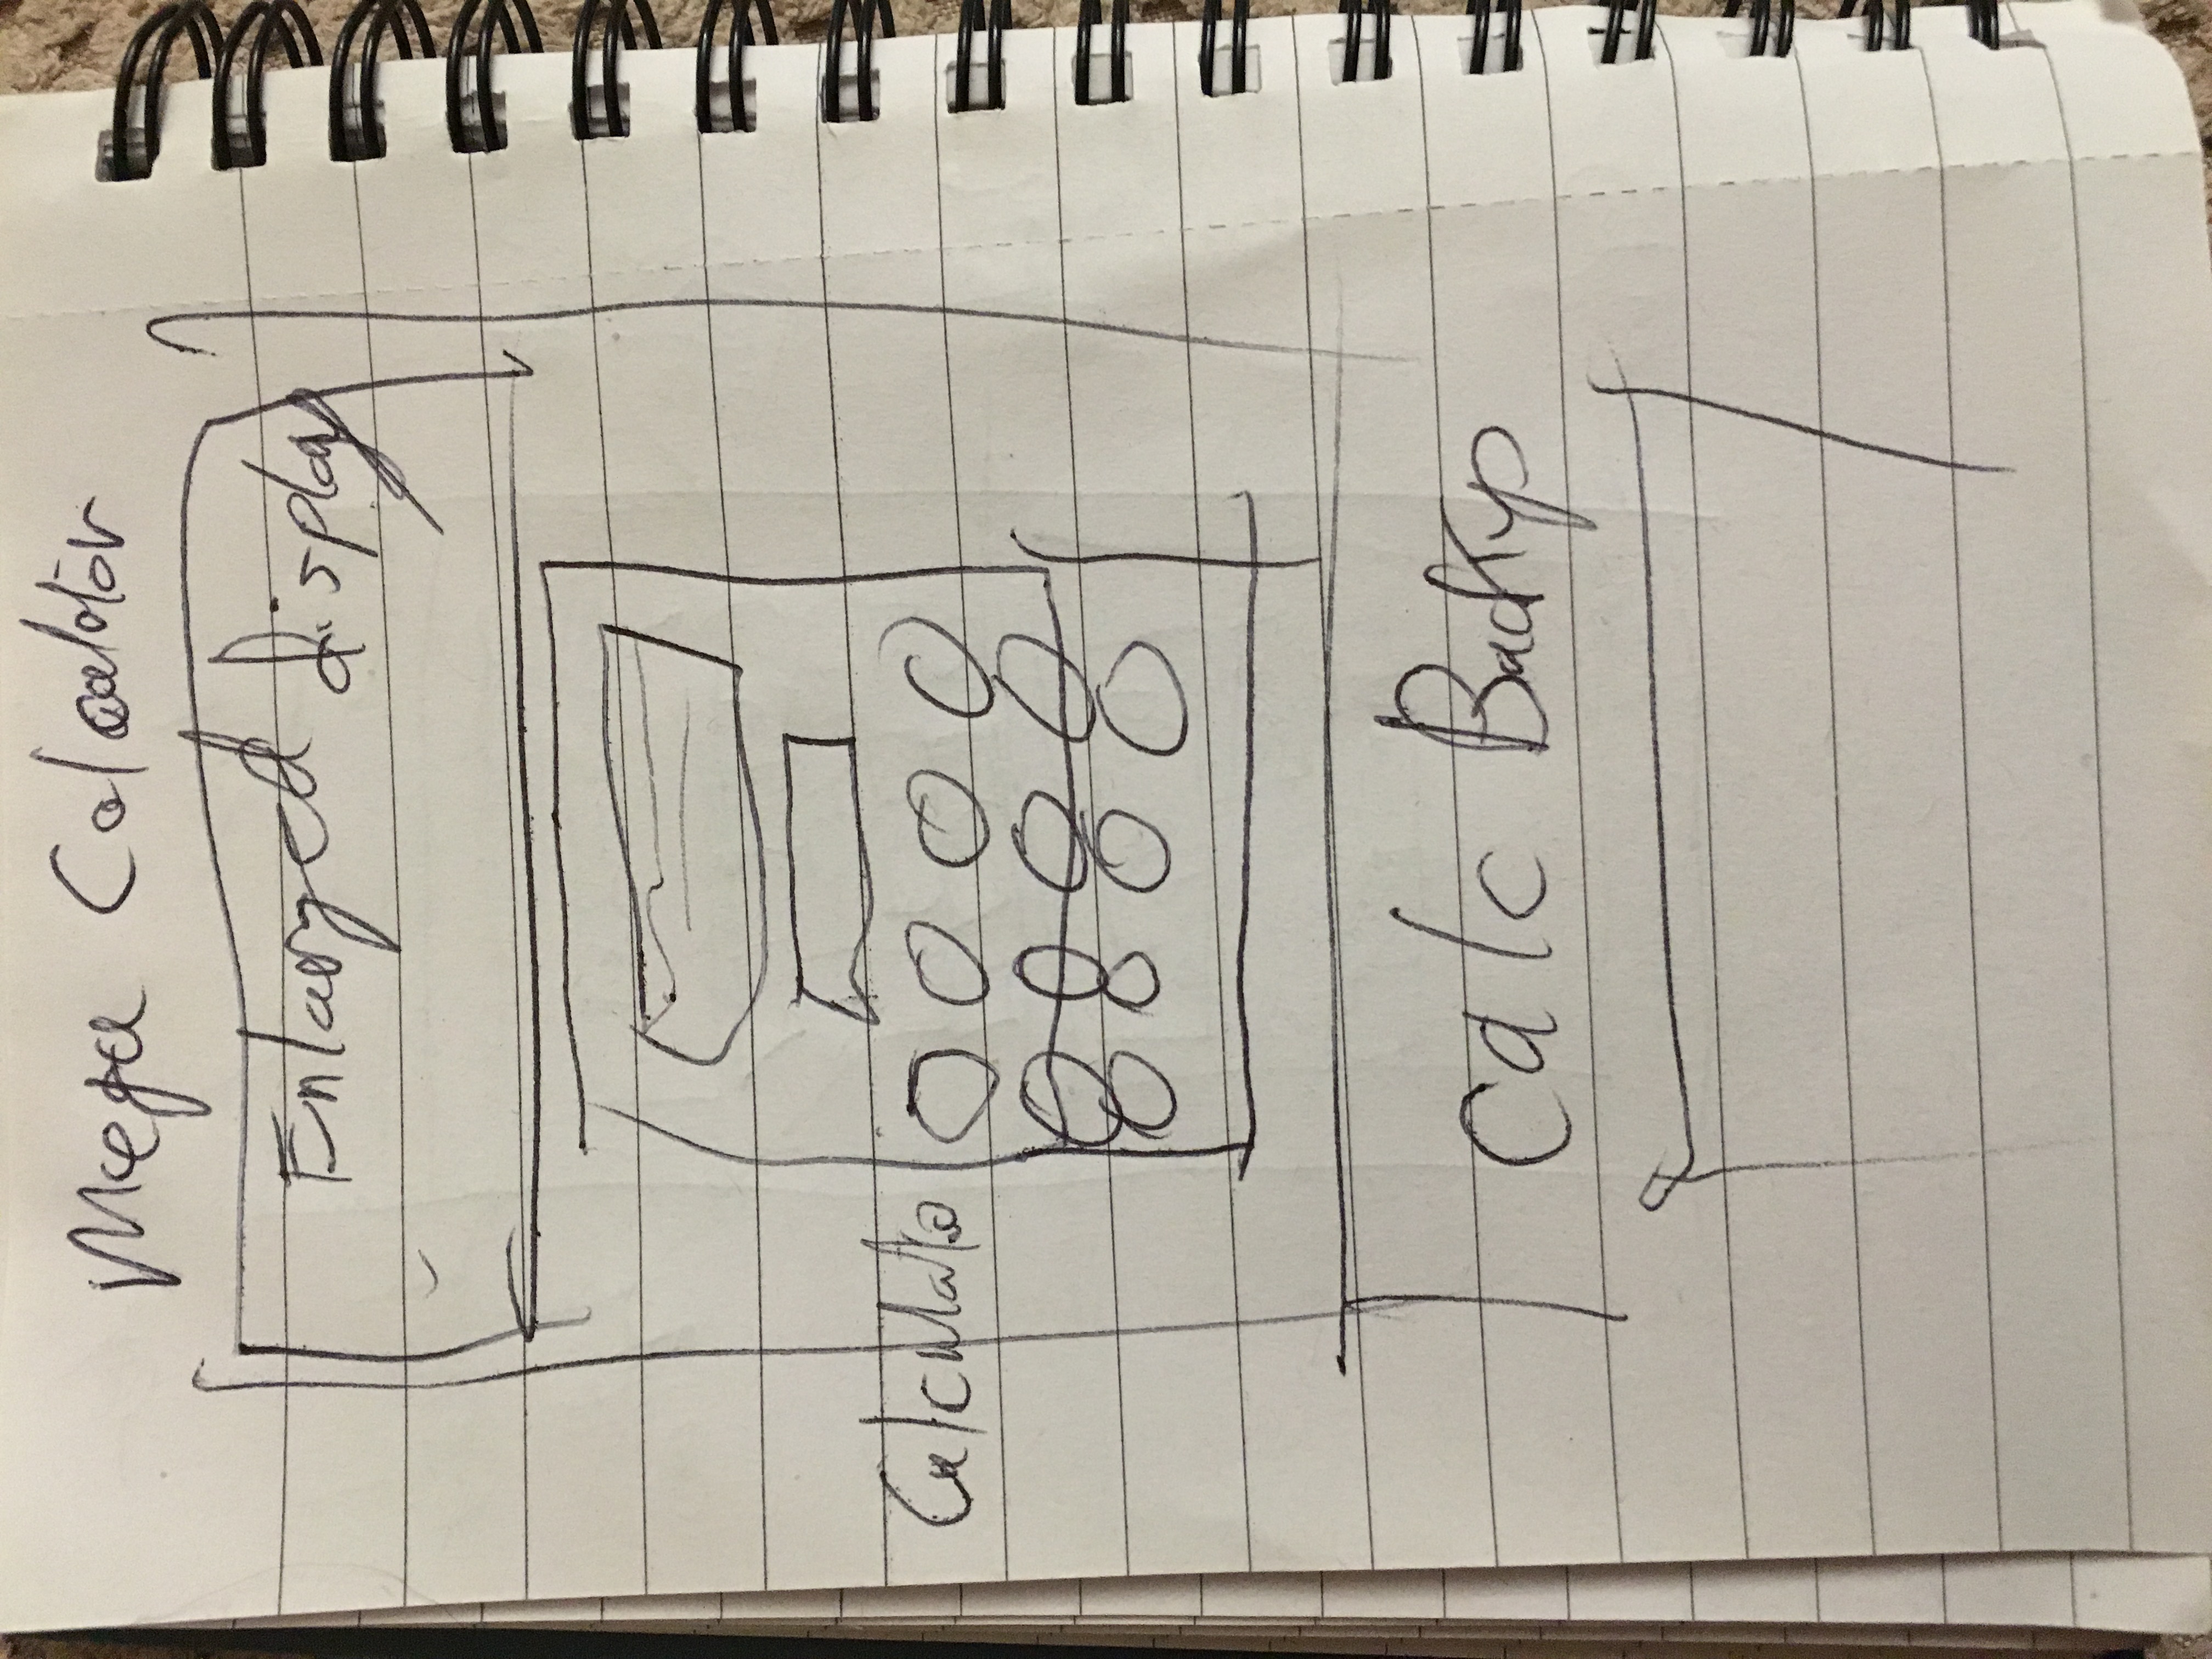 Mega Calculator
Enlarged display
Calculato
Calc Backup